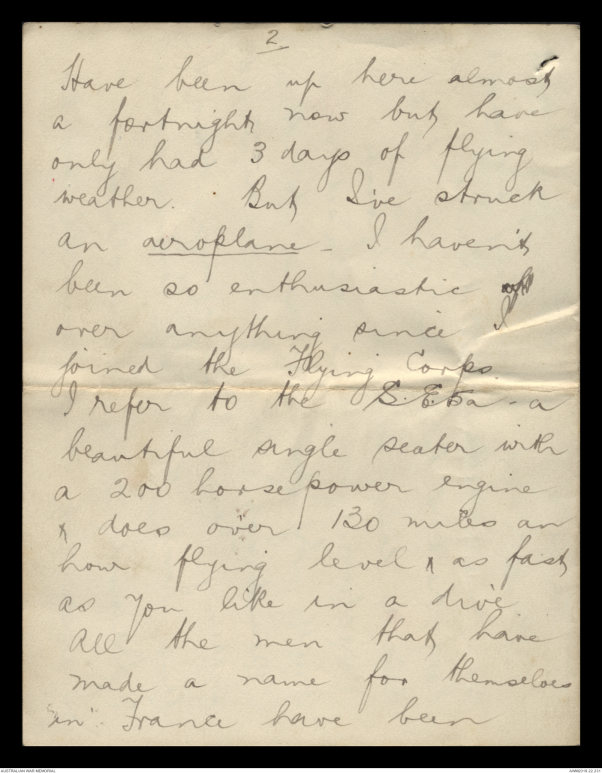 2
Have been up here almost
a fortnight now but have
only had 3 days of flying
weather. But I've struck
an aeroplane - I haven't
been so enthusiastic
over anything since I
joined the Flying Corps.
I refer to the S.E.5a - a
beautiful single seater with
a 200 horse power engine
& does over 130 miles an
hour flying level & as fast
as you like in a dive
All the men that have
made a name for themselves
"in" France have been
AUSTRALIAN WAR MEMORIAL